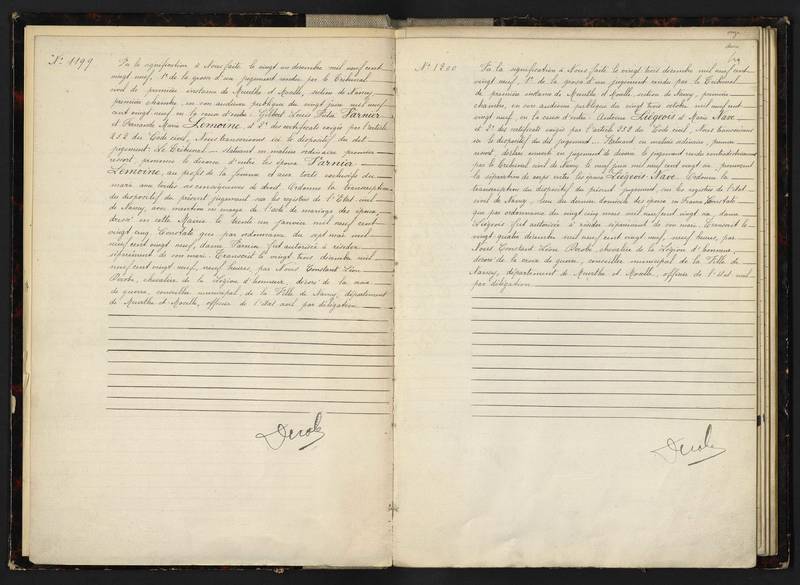 N° 1199
Vu la signification à Nous faite le vingt un décembre mil neuf cent
vingt neuf, 1° de la grosse d'un jugement rendu par le Tribunal
civil de première instance de Meurthe et Moselle, section de Nancy,
première chambre, en son audience publique du vingt juin mil neuf
cent vingt neuf, en la cause d'entre: Gilbert Louis Victor Parnier
et Fernande Marie Lemoine, et 2° des certificats exigés par l'article
252 du Code civil, Nous transcrivons ici le dispositif du dit
jugement: Le Tribunal _ Statuant en matière ordinaire, premier
ressort, prononce le divorce d'entre les époux Parnier-
Lemoine, au profit de la femme et aux torts exclusifs du
mari avec toutes ses conséquences de droit. Ordonne la transcription
du dispositif du présent jugement sur les registres de l'Etat civil
de Nancy, avec mention en marge de l'acte de mariage des époux,
dressé en cette Mairie le trente un janvier mil neuf cent
vingt cinq. Constate que par ordonnance du sept mai mil
neuf cent vingt neuf, dame Parnier fut autorisée à résider
séparément de son mari. Transcrit le vingt trois décembre mil
neuf cent vingt neuf, neuf heures, par Nous Constant Léon
Dérobe, chevalier de la Légion d'honneur, décoré de la croix
de guerre, conseiller municipal de la Ville de Nancy, département
de Meurthe et Moselle, officier de l'état civil par délégation
N° 1200
Vu la signification à Nous faite le vingt trois décembre mil neuf cent
vingt neuf, 1° de la grosse d'un jugement rendu par le Tribunal
civil de première instance de Meurthe et Moselle, section de Nancy, première
chambre, en son audience publique du vingt trois octobre mil neuf cent
vingt neuf, en la cause d'entre: Antoine Liégeois et Marie Nave
et 2° des certificats exigés par l'article 252 du Code civil, Nous transcrivons
ici le dispositif du dit jugement... Statuant en matière ordinaire, premier
ressort, déclare converti en jugement de divorce le jugement rendu contradictoirement
par le Tribunal civil de Nancy le neuf juin mil neuf cent vingt six prononçant
la séparation de corps entre les époux Liégeois-Nave. Ordonne la
transcription du dispositif du présent jugement, sur les registres de l'état
civil de Nancy, lieu du dernier domicile des époux en France. Constate
que par ordonnance du vingt cinq mars mil neuf cent vingt six, dame
Liégeois fut autorisée à résider séparément de son mari. Transcrit le
vingt quatre décembre mil neuf cent vingt neuf, neuf heures, par
Nous Constant Léon Dérobe, chevalier de la Légion d'honneur,
décoré de la croix de guerre, conseiller municipal de la Ville de
Nancy, département de Meurthe et Moselle, officier de l'état civil
par délégation